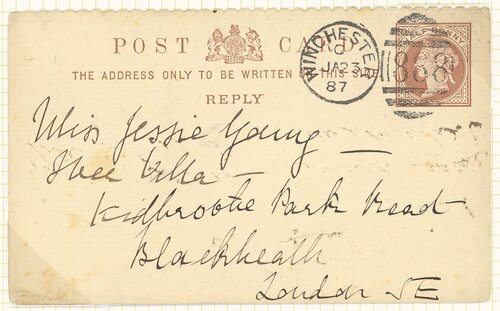 POST CARD
THE ADDRESS ONLY TO BE WRITTEN ON THIS SIDE
REPLY
WINCHESTER
C
JA 23
87
888
HALFPENNY
Miss Jessie Young —
Villa —
Kidbrooke Park Road
Blackheath
London SE